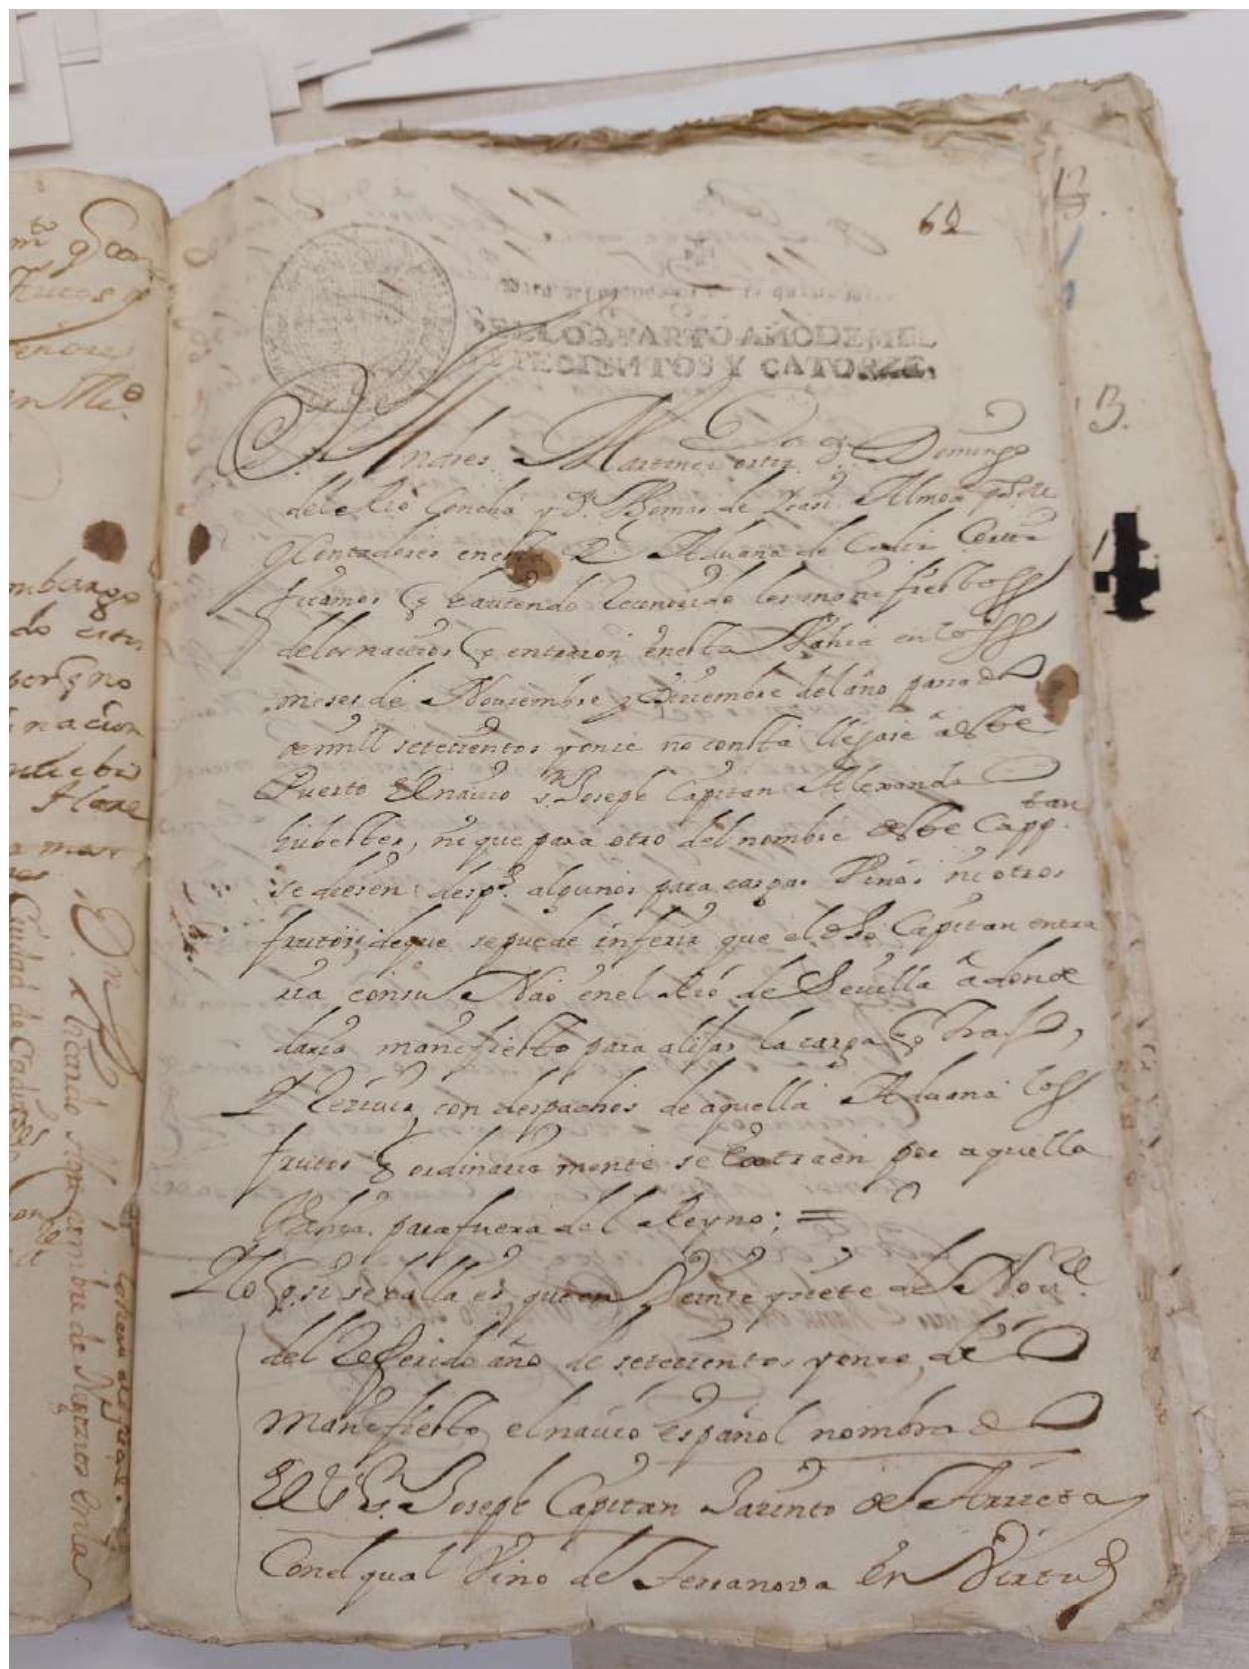 62
SELLO QVARTO AÑO DE MIL
SETECIENTOS Y CATORZE,
Dn Andres Martinez ortiz Dn Domingo
del Rio Concha y Dn Thomas de
y Contadores en esta Rl Aduana de Cadiz Certi
ficamos q haviendo Reconocido los manifiestoss
de los navios q entraron en esta Bahia en los
meses de Noviembre y Diziembre del año pasado
de mill setecientos y onze no consta llegase â este
Puerto El navio Sn Joseph Capitan Alexandro
hubester, ni que para otro del nombre de este Cappn
tan
se diesen despos algunos para cargar Vinos ni otros
frutos, de que se puede inferir que el dho Capitan entra
ria con su Nao en el Rio de Sevilla â donde
daria manifiesto para alijar la carga q Trajo,
y Reziviria con despachos de aquella Aduana los
frutos q ordinariamente se extraen por aquella
Bahia para fuera del Reyno; =
Lo q si se halla es, que en Veinte y siete de Nove
del Referido año de setecientos y onze, dio
Manifiesto el navio español nombrado
El Sr Sn Joseph Capitan Jazinto de Arrieta
Con el qual Vino de Terranova En Virtud
mbargo
nacion
Dn Ricardo
Ciudad de Cadiz
en nombre de